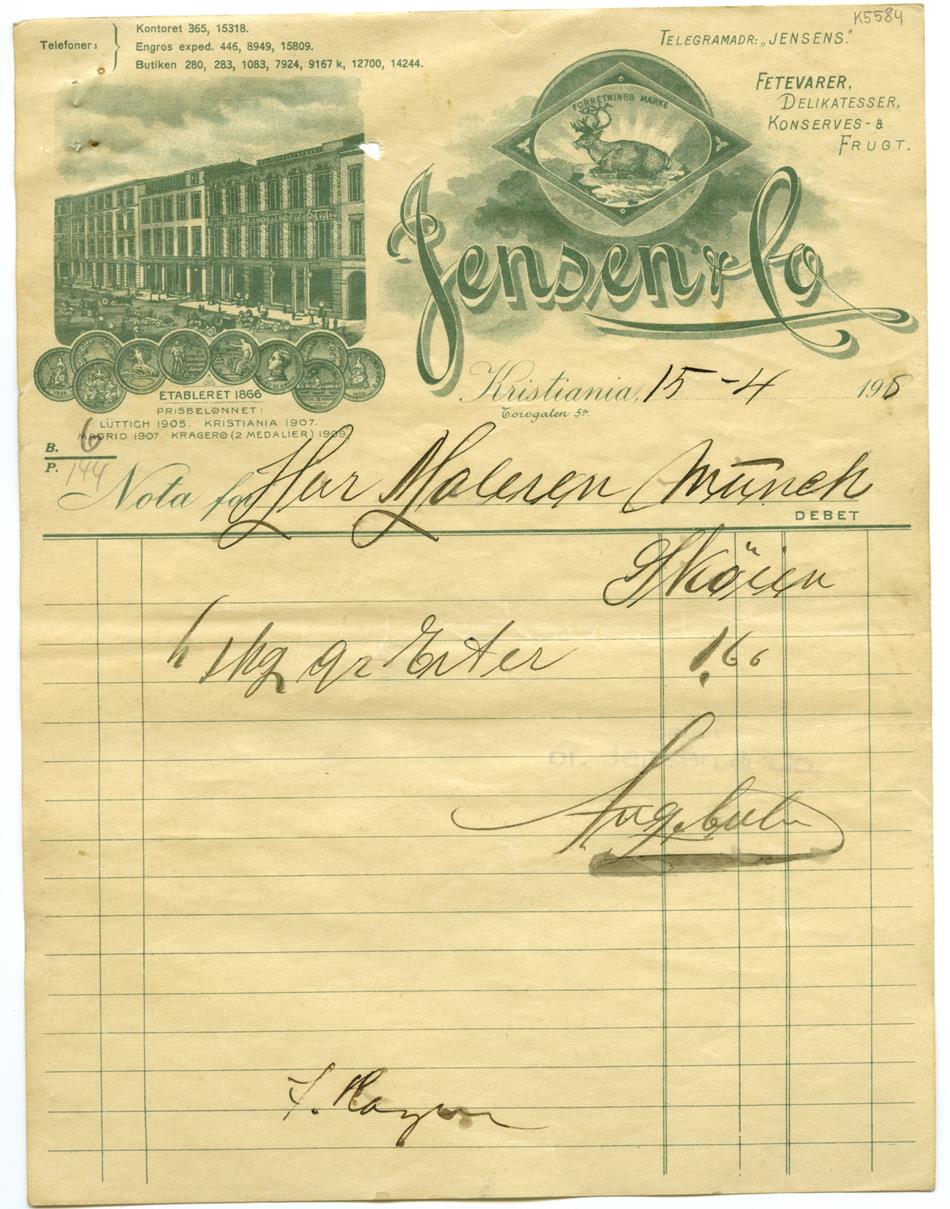 K5584
Telefoner:
Kontoret 365, 15318.
Engros exped. 446, 8949, 15809.
Butiken 280, 283, 1083, 7924, 9167 k, 12700, 14244.
TELEGRAMADR: „JENSENS."
FETEVARER,
DELIKATESSER,
KONSERVES- &
FRUGT.
FORRETNINGS MÆRKE
Jensen & Co
ETABLERET 1866
PRISBELØNNET:
LÜTTICH 1905. KRISTIANIA 1907.
MADRID 1907. KRAGERØ (2 MEDALIER) 1909
Kristiania, 15-4 191
Torvgaten 5a
B. 6
P. 144
Nota for Herr Maleren Münch
DEBET
Sköien
1 kg gr Erter 1.66